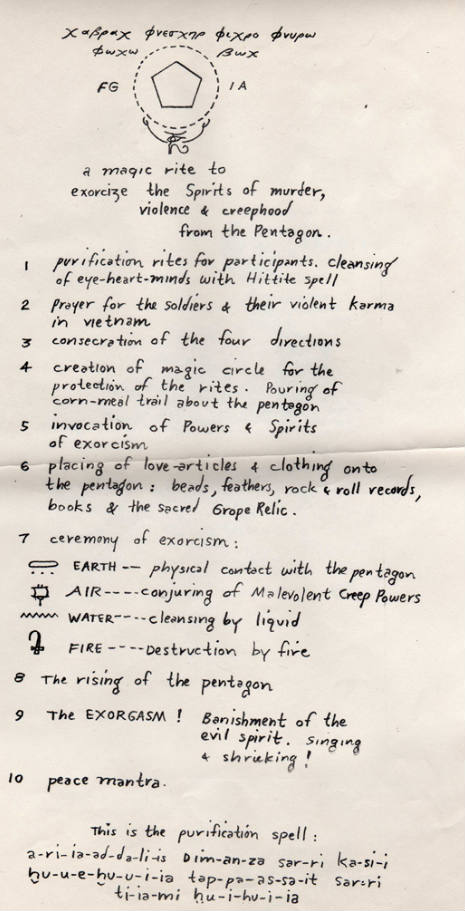 χαβραχ φνεσχηρ φιχρο φνυρω
φωχω βωχ
FG IA
a magic rite to
exorcize the Spirits of murder,
violence & creephood
from the Pentagon.
1 purification rites for participants. cleansing
of eye-heart-minds with Hittite spell
2 Prayer for the soldiers & their violent karma
in vietnam
3 consecration of the four directions
4 creation of magic circle for the
protection of the rites. Pouring of
corn-meal trail about the pentagon
5 invocation of Powers & Spirits
of exorcism
6 placing of love-articles & clothing onto
the pentagon: beads, feathers, rock & roll records,
books & the sacred Grope Relic.
7 ceremony of exorcism:
EARTH -- physical contact with the pentagon
AIR----conjuring of Malevolent Creep Powers
WATER----cleansing by liquid
FIRE ----Destruction by fire
8 The rising of the pentagon
9 The EXORGASM! Banishment of the
evil spirit. Singing
& shrieking!
10 peace mantra.
This is the purification spell:
a-ri-ia-ad-da-li-is Dim-an-za sar-ri ka-si-i
ḫu-u-e-ḫu-u-i-ia tap-pa-as-sa-it sar-ri
ti-ia-mi ḫu-i-ḫu-i-ia